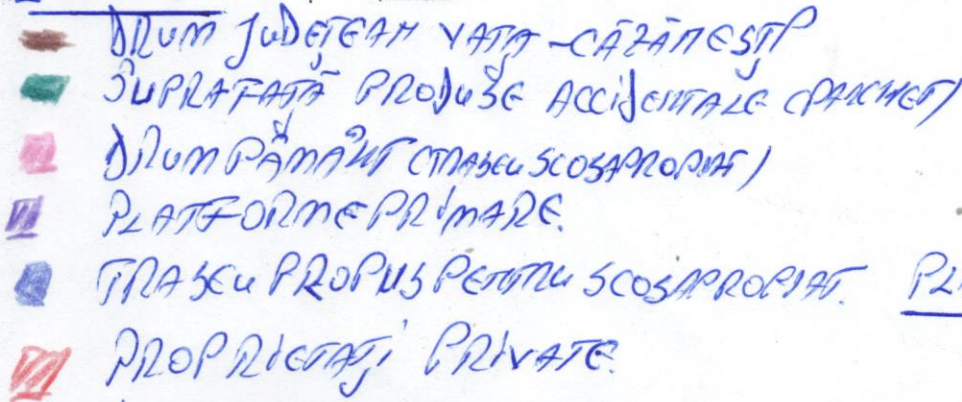 DRUM JUDEȚEAN VAȚA - CĂZĂNEȘTI
SUPRAFAȚĂ PRODUSE ACCIDENTALE (PARCHET)
DRUM PĂMÂNT (TRASEU SCOSAPROPIAT)
PLATFORME PRIMARE.
TRASEU PROPUS PENTRU SCOSAPROPIAT. PL
PROPRIETAȚI PRIVATE.